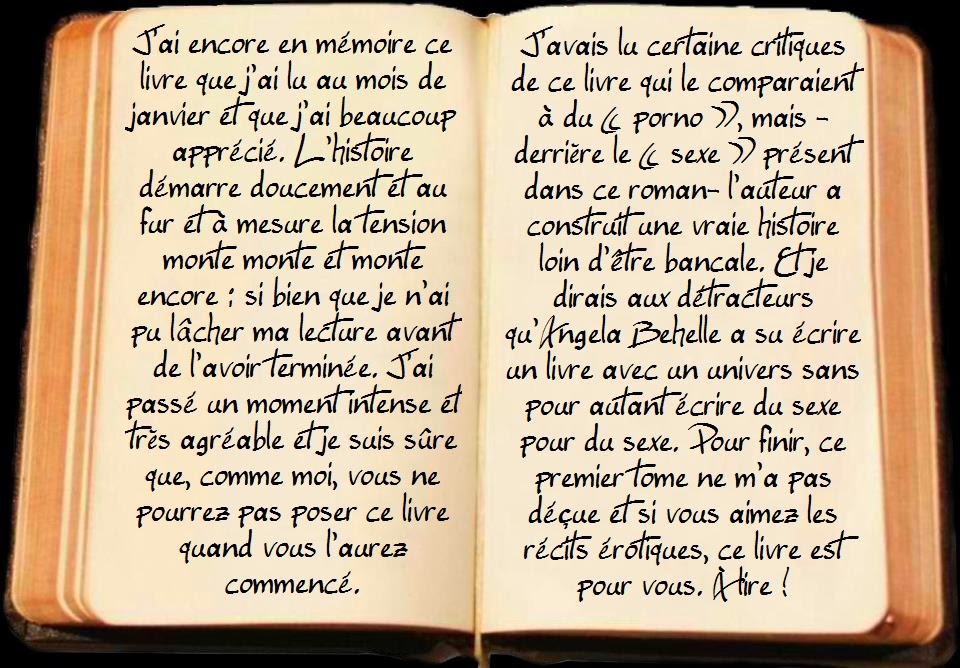 J'ai encore en mémoire ce
livre que j'ai lu au mois de
janvier et que j'ai beaucoup
apprécié. L'histoire
démarre doucement et au
fur et à mesure la tension
monte monte et monte
encore : si bien que je n'ai
pu lâcher ma lecture avant
de l'avoir terminée. J'ai
passé un moment intense et
très agréable et je suis sûre
que, comme moi, vous ne
pourrez pas poser ce livre
quand vous l'aurez
commencé.
J'avais lu certaine critiques
de ce livre qui le comparaient
à du « porno », mais -
derrière le « sexe » présent
dans ce roman- l'auteur a
construit une vraie histoire
loin d'être bancale. Et je
dirais aux détracteurs
qu'Angela Behelle a su écrire
un livre avec un univers sans
pour autant écrire du sexe
pour du sexe. Pour finir, ce
premier tome ne m'a pas
déçue et si vous aimez les
récits érotiques, ce livre est
pour vous. À lire !